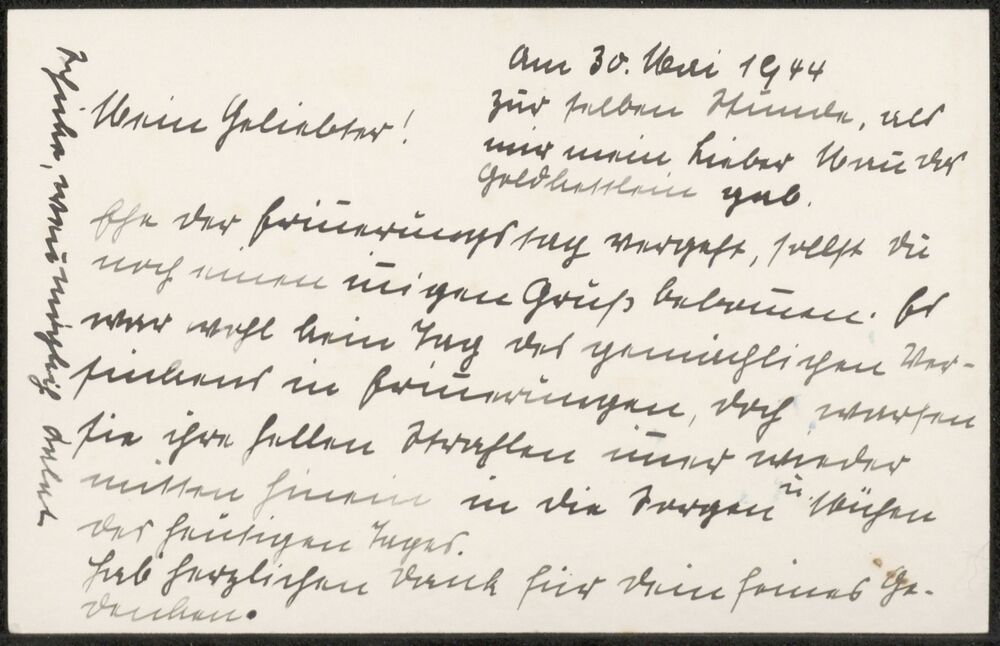 Am 30. Mai 1944
zur selben Stunde, als
mir mein lieber Mann das
gab.
Mein Geliebter!
Ehe der Erinnerungstag vergeht, sollst Du
noch einen innigen Gruß bekommen. Es
war wohl kein Tag des gemächlichen Ver-
sinkens in Erinnerungen, doch warfen
sie ihre hellen Strahlen immer wieder
mitten hinein in die Sorgen u. Mühen
des heutigen Tages.
Hab herzlichen Dank für Dein feines Ge-
denken.
wenn möglich